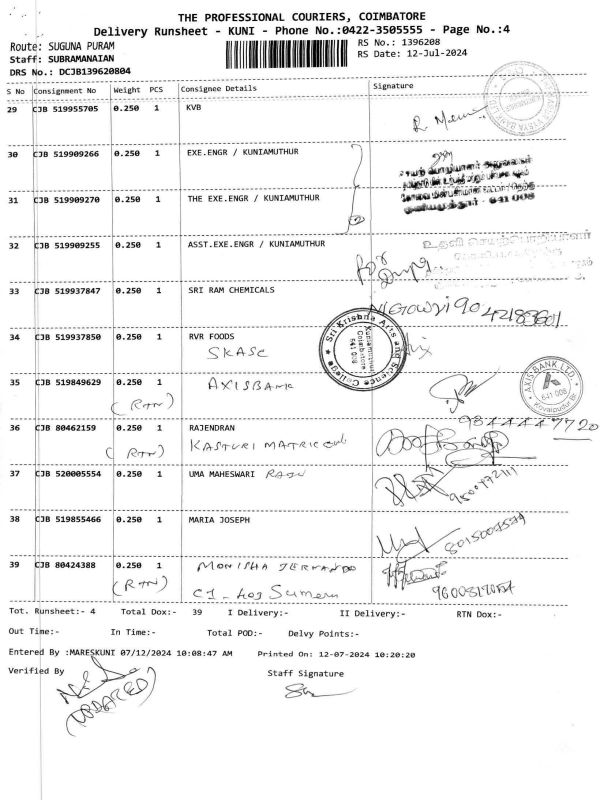 THE PROFESSIONAL COURIERS, COIMBATORE
Delivery Runsheet - KUNI - Phone No.:0422-3505555 - Page No.:4
Route: SUGUNA PURAM
RS No.: 1396208
Staff: SUBRAMANAIAN
RS Date: 12-Jul-2024
DRS No.: DCJB139620804
S No Consignment No Weight PCS Consignee Details Signature
29 CJB 519955705 0.250 1 KVB
30 CJB 519909266 0.250 1 EXE.ENGR / KUNIAMUTHUR
31 CJB 519909270 0.250 1 THE EXE.ENGR / KUNIAMUTHUR
32 CJB 519909255 0.250 1 ASST.EXE.ENGR / KUNIAMUTHUR
For
33 CJB 519937847 0.250 1 SRI RAM CHEMICALS
34 CJB 519937850 0.250 1 RVR FOODS
SKASC
Sri Krishna Arts and Science College
Kuniamuthur
Coimbatore
641 008
35 CJB 519849629 0.250 1 AXISBANK
(RTN)
AXIS BANK LTD
641 008
36 CJB 80462159 0.250 1 RAJENDRAN
(RTN)
37 CJB 520005554 0.250 1 UMA MAHESWARI RAJU
38 CJB 519855466 0.250 1 MARIA JOSEPH
39 CJB 80424388 0.250 1 MONISHA
(RTN)
Tot. Runsheet:- 4 Total Dox:- 39 I Delivery:- II Delivery:- RTN Dox:-
Out Time:- In Time:- Total POD:- Delvy Points:-
Entered By :MARESKUNI 07/12/2024 10:08:47 AM Printed On: 12-07-2024 10:20:20
Verified By
Staff Signature
(UPDATED)